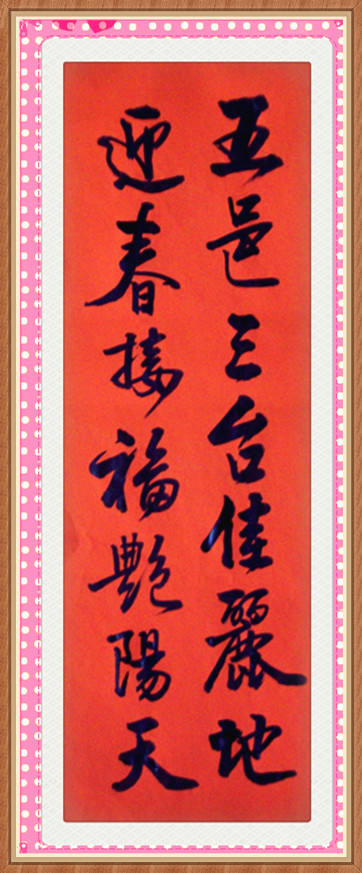 五邑三台佳麗地
迎春接福艷陽天